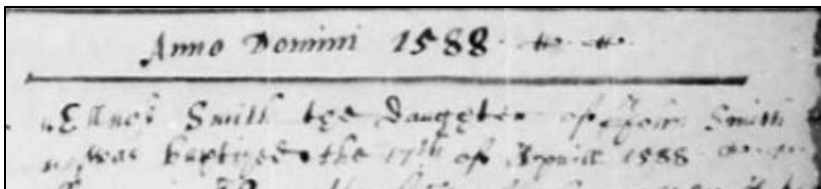 Anno Domini 1588
Smith the daughter of John Smith
was baptized the 17th of Aprill 1588